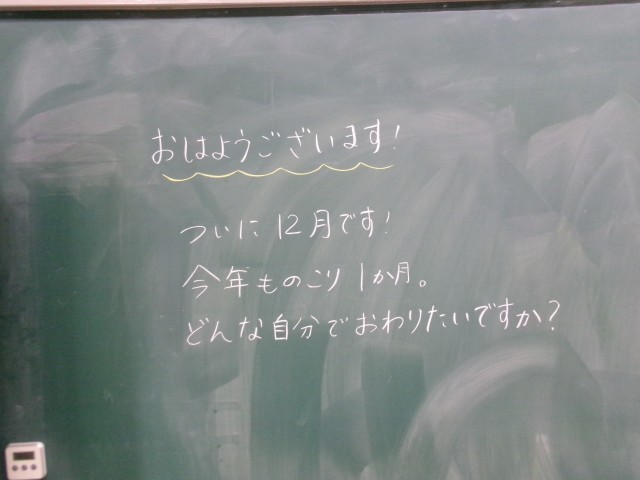 おはようございます!
ついに12月です!
今年ものこり1か月。
どんな自分でおわりたいですか?